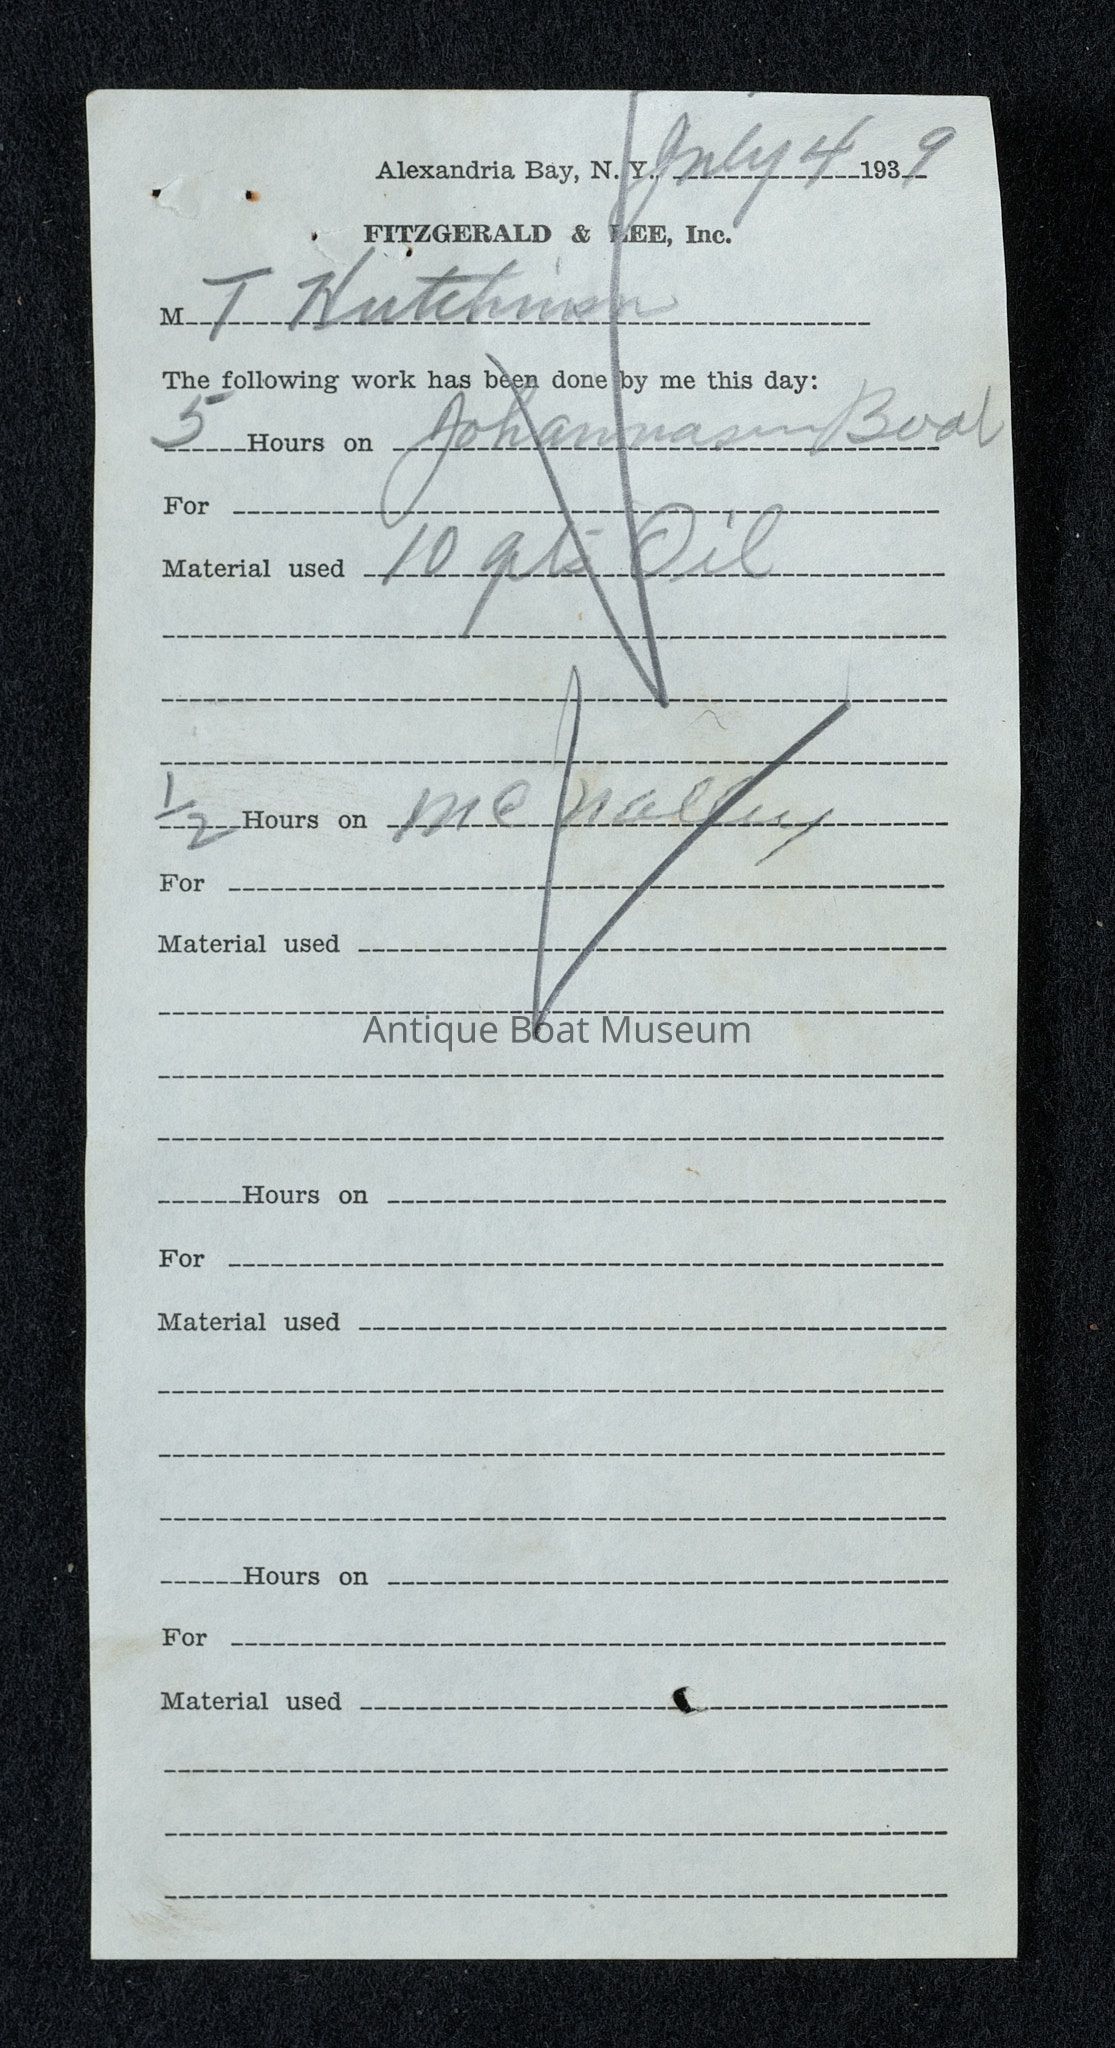 Alexandria Bay, N. Y. July 4 1939
FITZGERALD & LEE, Inc.
M T Hutchinson
The following work has been done by me this day:
5 Hours on Johannason Boat
For
Material used 10 qts Oil
1/2 Hours on Mc Nalley
For
Material used
Antique Boat Museum
Hours on
For
Material used
Hours on
For
Material used